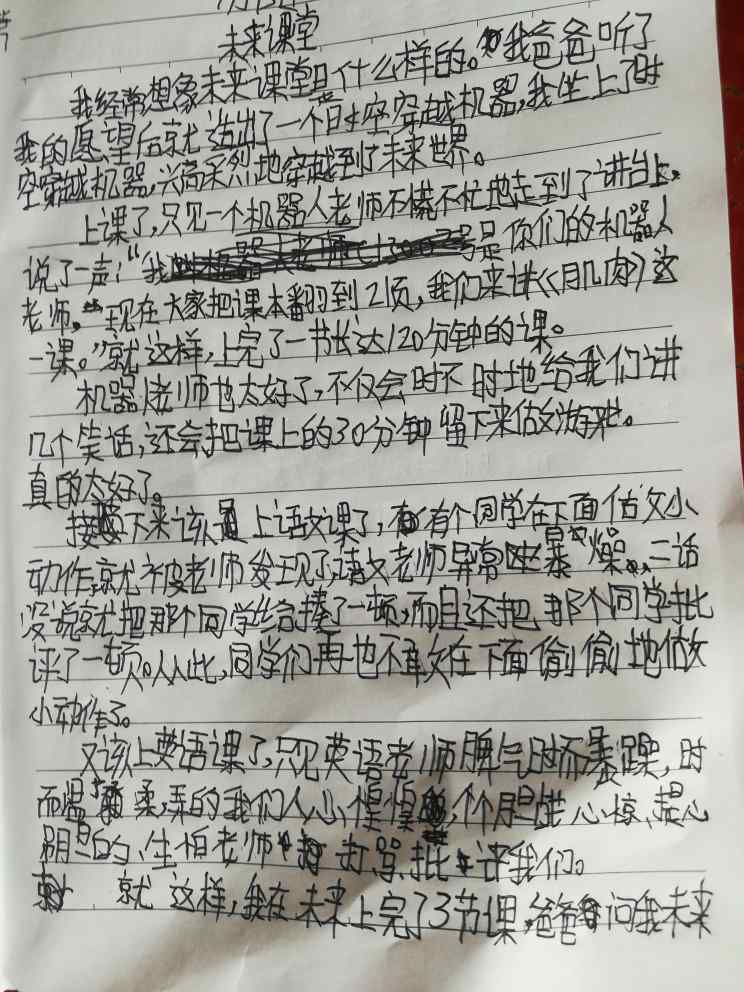 未来课堂
我经常想象未来课堂是什么样的。我爸爸听了
我的愿望后就造出了一个时空穿越机器,我坐上了时
空穿越机器,兴高采烈地穿越到了未来世界。
上课了,只见一个机器人老师不慌不忙地走到了讲台上,
说了一声:“我是你们的机器人
老师,现在大家把课本翻到21页,我们来讲《月几肉》这
一课。”就这样,上完了一节长达120分钟的课。
机器老师也太好了,不仅会时不时地给我们讲
几个笑话,还会把课上的30分钟留下来做游戏。
真的太好了。
接下来该上语文课了,有个同学在下面做小
动作,就被老师发现了,语文老师异常暴燥。二话
没说就把那个同学给揍了一顿,而且还把那个同学批
评了一顿。从此,同学们再也不敢在下面偷偷地做
小动作了。
又该上英语课了,只见英语老师脾气时而暴躁,时
而温柔,弄的我们人心惶惶,个个胆战心惊、提心
吊胆的、生怕老师打骂批评我们。
就这样,我在未来上完了3节课,爸爸问我未来